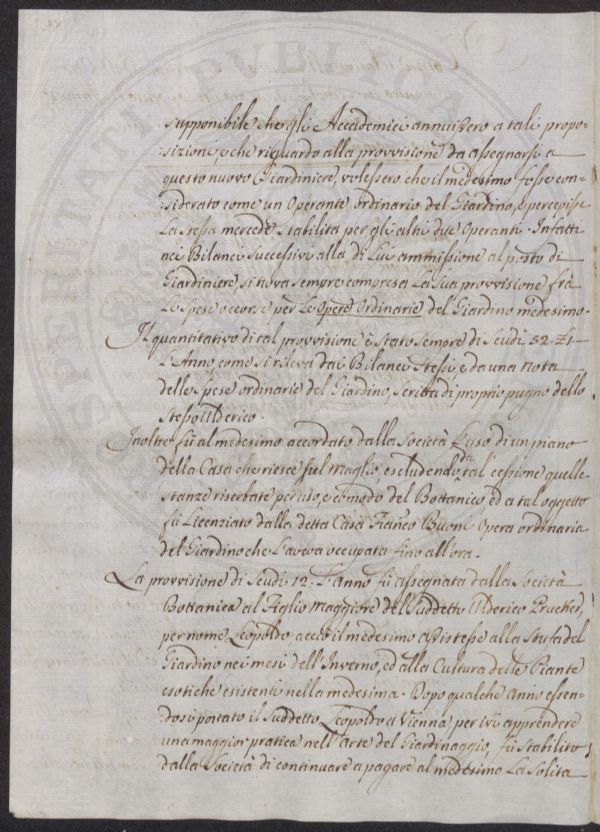 supponibile che gli Accademici annuissero a tali propo=
:sizioni, e che riguardo alla provvisione da assegnarsi a
questo nuovo Giardiniere, volessero che il medesimo fosse con=
:siderato come un Operante ordinario del Giardino, e percepisse
La stessa mercede stabilita per gli altri due Operanti. Infatti
nei Bilanci successivi alla di Lui ammissione al posto di
Giardiniere, si trova sempre compresa La sua provvisione frà
Le spese occorse per Le Opere Ordinarie del Giardino medesimo.
Il quantitativo di tal provvisione è stato sempre di Scudi 52
L'Anno, come si rileva dai Bilanci stessi, e da una nota
delle spese ordinarie del Giardino, scritta di proprio pugno dello
stesso Ulderico.
Inoltre fù al medesimo accordato dalla Società L'uso di un piano
della Casa che riesce sul Maglio escludendo da tal' cessione quelle
stanze riserbate per uso, e comodo del Bottanico, ed a tal oggetto
fù Licenziato dalla detta Casa Franco Buoni Opera ordinaria
del Giardino che L'aveva occupata fino all'ora.
La provvisione di Scudi 12. L'anno fù assegnata dalla Società
Bottanica al Figlio maggiore dell suddetto Ulderico Prucker,
per nome Leopoldo, acciò il medesimo assistesse alla Stufa del
Giardino nei mesi dell'Inverno, ed alla Cultura delle Piante
esotiche esistenti nella medesima. Dopo qualche Anno essen=
:dosi portato il suddetto Leopoldo a Vienna, per ivi apprendere
una maggior pratica nell'Arte del Giardinaggio, fù stabilito
dalla Società di continuare a pagare al medesimo La solita